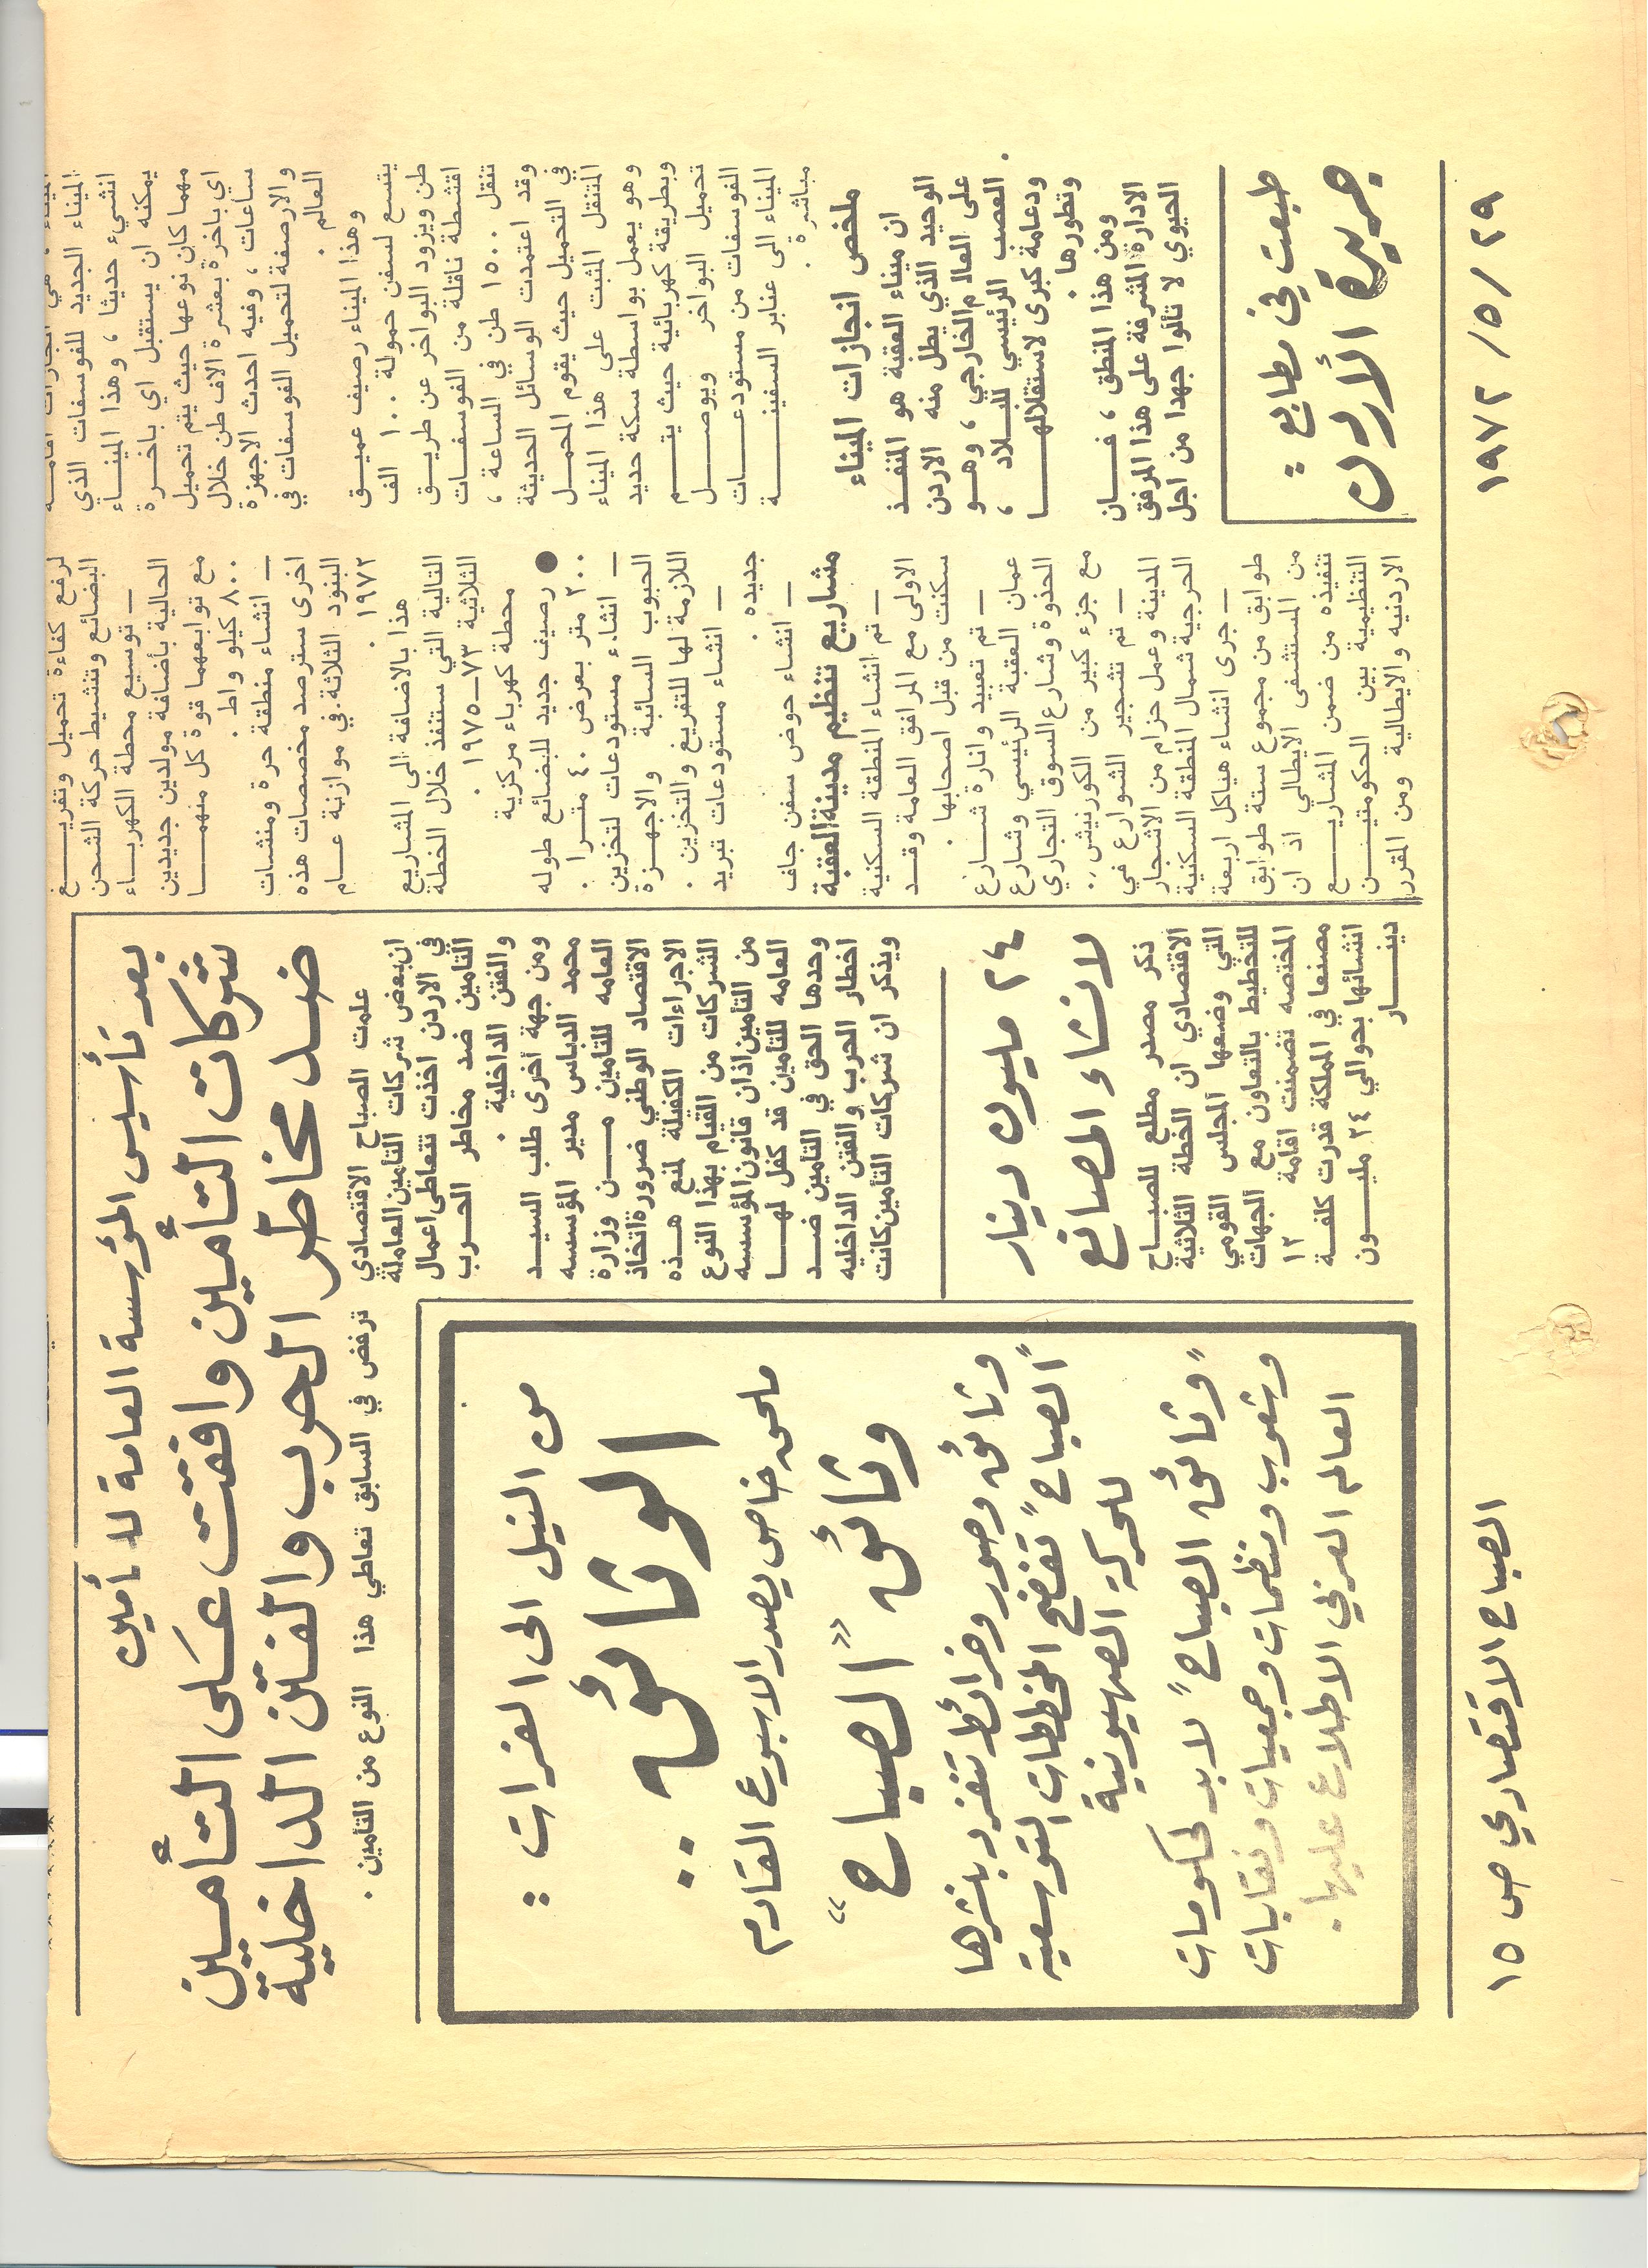 الميناء الجديد للفوسفات الذي
انشيء حديثا ، وهذا الميناء
يمكنه ان يستقبل اي باخرة
مهما كان نوعها حيث يتم تحميل
اي باخرة بعشرة الاف طن خلال
ساعات ، وفيه احدث الاجهزة
والارصفة لتحميل الفوسفات في
العالم .
وهذا الميناء رصيف عميق
يتسع لسفن حمولة ١٠٠ الف
طن ويزود البواخر عن طريق
اقشطة ناقلة من الفوسفات
تنقل ١٥٠٠ طن في الساعة ،
وقد اعتمدت الوسائل الحديثة
في التحميل حيث يقوم المحمل
المتنقل المثبت على هذا الميناء
وهو يعمل بواسطة سكة حديد
وبطريقة كهربائية حيث يتم
تحميل البواخر ويوصل
الفوسفات من مستودعات
الميناء الى عنابر السفينة
مباشرة .
ملخص انجازات الميناء
ان ميناء العقبة هو المنفذ
الوحيد الذي يطل منه الاردن
على العالم الخارجي ، وهو
العصب الرئيسي للبلاد ،
ودعامة كبرى لاستقلالها
وتطورها .
ومن هذا المنطق ، فان
الادارة المشرفة على هذا المرفق
الحيوي لا تألوا جهدا من اجل
طبعت في مطابع :
جريدة الأردن
لرفع كفاءة تحميل وتفريغ
البضائع وتنشيط حركة الشحن
— توسيع محطة الكهرباء
الحالية بأضافة مولدين جديدين
مع توابعهما قوة كل منهما
٨٠٠ كيلو واط .
— انشاء منطقة حرة ومنشات
اخرى سترصد مخصصات هذه
البنود الثلاثة في موازنة عام
١٩٧٢ .
هذا بالاضافة الى المشاريع
التالية التي ستنفذ خلال الخطة
الثلاثية ٧٣—١٩٧٥ .
محطة كهرباء مركزية
● رصيف جديد للبضائع طوله
٢٠٠ متر بعرض ٤٠ مترا .
— انشاء مستودعات لتخزين
الحبوب السائبة والاجهزة
اللازمة لها للتفريغ والتخزين .
— انشاء مستودعات تبريد
جديده .
— انشاء حوض سفن جاف
مشاريع تنظيم مدينة العقبة
— تم انشاء المنطقة السكنية
الاولى مع المرافق العامة وقد
سكنت من قبل اصحابها .
— تم تعبيد وانارة شارع
عمان العقبة الرئيسي وشارع
الحذوة وشارع السوق التجاري
مع جزء كبير من الكورنيش ..
— تم تشجير الشوارع في
المدينة وعمل حزام من الاشجار
الحرجية شمال المنطقة السكنية
— جرى انشاء هياكل اربعة
طوابق من مجموع ستة طوابق
من المستشفى الايطالي اذ ان
تنفيذه من ضمن المشاريع
التنظيمية بين الحكومتين
الاردنيه والايطالية ومن المقرر
بعد تأسيس المؤسسة العامة للتأمين
شركات التأمين وافقت على التأمين
ضد مخاطر الحرب والفتن الداخلية
علمت الصباح الاقتصادي
ان بعض شركات التأمين العاملة
في الاردن اخذت تتعاطى اعمال
التأمين ضد مخاطر الحرب
والفتن الداخلية .
ومن جهة اخرى طلب السيد
محمد الدباس مدير المؤسسه
العامه للتأمين من وزارة
الاقتصاد الوطني ضرورة اتخاذ
الاجراءات الكفيلة لمنع هذه
الشركات من القيام بهذا النوع
من التأمين اذ ان قانون المؤسسه
العامه للتأمين قد كفل لها
وحدها الحق في التأمين ضد
اخطار الحرب والفتن الداخليه
ويذكر ان شركات التأمين كانت
ترفض في السابق تعاطي هذا النوع من التأمين .
٢٤ مليون دينار
لانشاء المصانع
ذكر مصدر مطلع للصباح
الاقتصادي ان الخطة الثلاثية
التي وضعها المجلس القومي
للتخطيط بالتعاون مع الجهات
المختصه تضمنت اقامة ١٢
مصنعا في المملكة قدرت كلفة
انشائها بحوالي ٢٤ مليون
دينار
من النيل الى الفرات :
الوثائق ..
ملحق خاص يصدر الاسبوع القادم
وثائق « الصباح »
وثائق وصور وخرائط تنفرد بنشرها
"الصباح" تفضح المخططات التوسعية
للحركة الصهيونية
"وثائق الصباح" لابد لحكومات
وشعوب ومنظمات وجمعيات ونقابات
العالم العربي الاطلاع عليها .
١٩٧٢/٥/٢٩
الصباح الاقتصادي ص ١٥